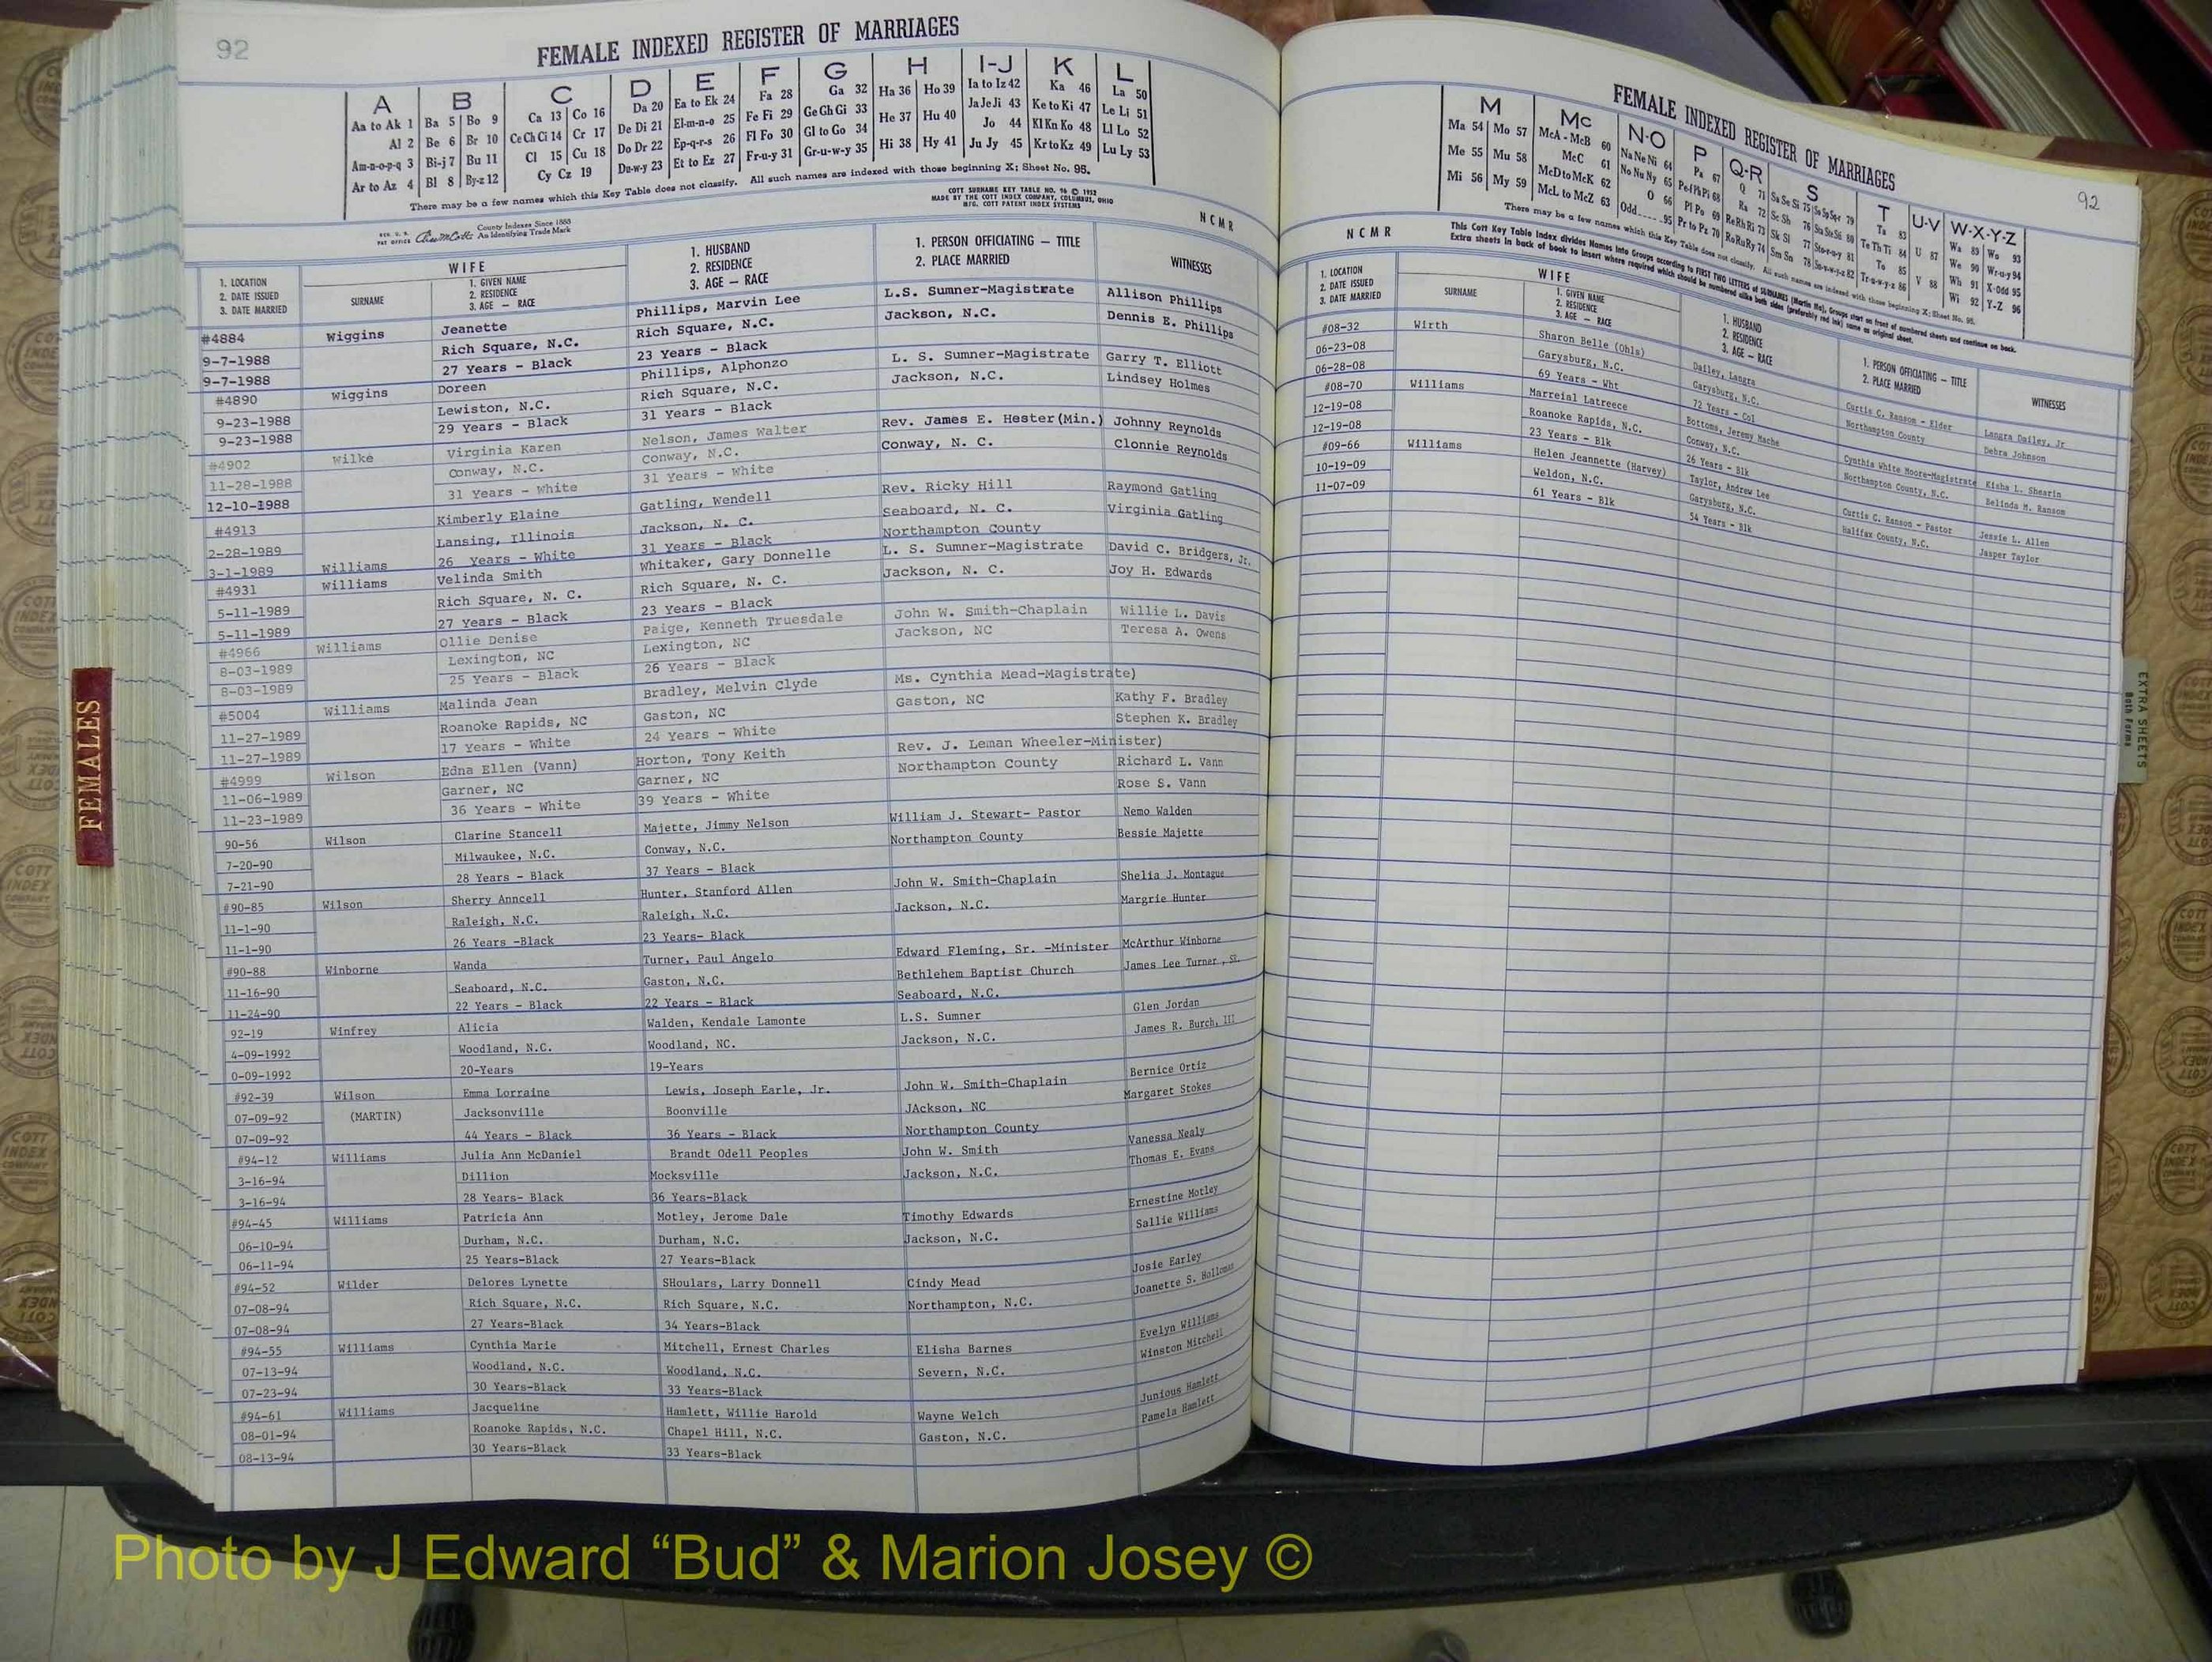 92
FEMALE INDEXED REGISTER OF MARRIAGES
A B C D E F G H I-J K L
Aa to Ak 1 Ba 5 Bo 9 Ca 13 Co 16 Da 20 Ea to Ek 24 Fa 28 Ga 32 Ha 36 Ho 39 Ia to Iz 42 Ka 46 La 50
Al 2 Be 6 Br 10 Ce Ch Ci 14 Cr 17 De Di 21 El-m-n-o 25 Fe Fi 29 Ge Gh Gi 33 He 37 Hu 40 Ja Je Ji 43 Ke to Ki 47 Le Li 51
Am-n-o-p-q 3 Bi-j 7 Bu 11 Cl 15 Cu 18 Do Dr 22 Ep-q-r-s 26 Fl Fo 30 Gl to Go 34 Hi 38 Hy 41 Jo 44 Kl Kn Ko 48 Ll Lo 52
Ar to Az 4 Bl 8 By-z 12 Cy Cz 19 Du-w-y 23 Et to Ez 27 Fr-u-y 31 Gr-u-w-y 35 Ju Jy 45 Kr to Kz 49 Lu Ly 53
There may be a few names which this Key Table does not classify. All such names are indexed with those beginning X; Sheet No. 95.
County Indexes Since 1888
An Identifying Trade Mark
COTT SURNAME KEY TABLE NO. 96 © 1952
MADE BY THE COTT INDEX COMPANY, COLUMBUS, OHIO
MFG. COTT PATENT INDEX SYSTEMS
NCMR
1. LOCATION
2. DATE ISSUED
3. DATE MARRIED
WIFE
SURNAME
1. GIVEN NAME
2. RESIDENCE
3. AGE — RACE
1. HUSBAND
2. RESIDENCE
3. AGE — RACE
1. PERSON OFFICIATING — TITLE
2. PLACE MARRIED
WITNESSES
#4884 Wiggins Jeanette Phillips, Marvin Lee L.S. Sumner-Magistrate Allison Phillips
9-7-1988 Rich Square, N.C. Rich Square, N.C. Jackson, N.C. Dennis E. Phillips
9-7-1988 27 Years - Black 23 Years - Black
#4890 Wiggins Doreen Phillips, Alphonzo L. S. Sumner-Magistrate Garry T. Elliott
9-23-1988 Lewiston, N.C. Rich Square, N.C. Jackson, N.C. Lindsey Holmes
9-23-1988 29 Years - Black 31 Years - Black
#4902 Wilke Virginia Karen Nelson, James Walter Rev. James E. Hester(Min.) Johnny Reynolds
11-28-1988 Conway, N.C. Conway, N.C. Conway, N. C. Clonnie Reynolds
12-10-1988 31 Years - White 31 Years - White
#4913 Kimberly Elaine Gatling, Wendell Rev. Ricky Hill Raymond Gatling
2-28-1989 Lansing, Illinois Jackson, N. C. Seaboard, N. C. Virginia Gatling
3-1-1989 Williams 26 Years - White 31 Years - Black Northampton County
#4931 Williams Velinda Smith Whitaker, Gary Donnelle L. S. Sumner-Magistrate David C. Bridgers, Jr.
5-11-1989 Rich Square, N. C. Rich Square, N. C. Jackson, N. C. Joy H. Edwards
5-11-1989 27 Years - Black 23 Years - Black
#4966 Williams Ollie Denise Paige, Kenneth Truesdale John W. Smith-Chaplain Willie L. Davis
8-03-1989 Lexington, NC Lexington, NC Jackson, NC Teresa A. Owens
8-03-1989 25 Years - Black 26 Years - Black
#5004 Williams Malinda Jean Bradley, Melvin Clyde Ms. Cynthia Mead-Magistrate)
11-27-1989 Roanoke Rapids, NC Gaston, NC Gaston, NC Kathy F. Bradley
11-27-1989 17 Years - White 24 Years - White Stephen K. Bradley
#4999 Wilson Edna Ellen (Vann) Horton, Tony Keith Rev. J. Leman Wheeler-Minister)
11-06-1989 Garner, NC Garner, NC Northampton County Richard L. Vann
11-23-1989 36 Years - White 39 Years - White Rose S. Vann
90-56 Wilson Clarine Stancell Majette, Jimmy Nelson William J. Stewart- Pastor Nemo Walden
7-20-90 Milwaukee, N.C. Conway, N.C. Northampton County Bessie Majette
7-21-90 28 Years - Black 37 Years - Black
#90-85 Wilson Sherry Anncell Hunter, Stanford Allen John W. Smith-Chaplain Shelia J. Montague
11-1-90 Raleigh, N.C. Raleigh, N.C. Jackson, N.C. Margrie Hunter
11-1-90 26 Years -Black 23 Years- Black
#90-88 Winborne Wanda Turner, Paul Angelo Edward Fleming, Sr. -Minister McArthur Winborne
11-16-90 Seaboard, N.C. Gaston, N.C. Bethlehem Baptist Church James Lee Turner, Sr.
11-24-90 22 Years - Black 22 Years - Black Seaboard, N.C.
92-19 Winfrey Alicia Walden, Kendale Lamonte L.S. Sumner Glen Jordan
4-09-1992 Woodland, N.C. Woodland, NC. Jackson, N.C. James R. Burch, III
0-09-1992 20-Years 19-Years
#92-39 Wilson Emma Lorraine Lewis, Joseph Earle, Jr. John W. Smith-Chaplain Bernice Ortiz
07-09-92 (MARTIN) Jacksonville Boonville JAckson, NC Margaret Stokes
07-09-92 44 Years - Black 36 Years - Black Northampton County
#94-12 Williams Julia Ann McDaniel Brandt Odell Peoples John W. Smith Vanessa Nealy
3-16-94 Dillion Mocksville Jackson, N.C. Thomas E. Evans
3-16-94 28 Years- Black 36 Years-Black
#94-45 Williams Patricia Ann Motley, Jerome Dale Timothy Edwards Ernestine Motley
06-10-94 Durham, N.C. Durham, N.C. Jackson, N.C. Sallie Williams
06-11-94 25 Years-Black 27 Years-Black
#94-52 Wilder Delores Lynette SHoulars, Larry Donnell Cindy Mead Josie Earley
07-08-94 Rich Square, N.C. Rich Square, N.C. Northampton, N.C. Joanette S. Holloman
07-08-94 27 Years-Black 34 Years-Black
#94-55 Williams Cynthia Marie Mitchell, Ernest Charles Elisha Barnes Evelyn Williams
07-13-94 Woodland, N.C. Woodland, N.C. Severn, N.C. Winston Mitchell
07-23-94 30 Years-Black 33 Years-Black
#94-61 Williams Jacqueline Hamlett, Willie Harold Wayne Welch Junious Hamlett
08-01-94 Roanoke Rapids, N.C. Chapel Hill, N.C. Gaston, N.C. Pamela Hamlett
08-13-94 30 Years-Black 33 Years-Black
FEMALES
FEMALE INDEXED REGISTER OF MARRIAGES
92
M Mc N-O P Q-R S T U-V W-X-Y-Z
Ma 54 Mo 57 McA - McB 60 Na Ne Ni 64 Pa 67 Q 71 Sa Se Si 75 So Sp Sq-r 79 Ta 83 U 87 Wa 89 Wo 93
Me 55 Mu 58 McC 61 No Nu Ny 65 Pe-f Ph Pi 68 Ra 72 Sc Sh 76 Sta Ste Sti 80 Te Th Ti 84 V 88 We 90 Wr-u-y 94
Mi 56 My 59 McD to McK 62 O 66 Pl Po 69 Re Rh Ri 73 Sk Sl 77 Sto-r-u-y 81 To 85 Wh 91 X-Odd 95
McL to McZ 63 Odd 95 Pr to Pz 70 Ro Ru Ry 74 Sm Sn 78 Su-v-w-y-z 82 Tr-u-w-y-z 86 Wi 92 Y-Z 96
There may be a few names which this Key Table does not classify. All such names are indexed with those beginning X; Sheet No. 95.
This Cott Key Table Index divides Names into Groups according to FIRST TWO LETTERS of SURNAMES (Martin Ma), Groups start on front of numbered sheets and continue on back.
Extra sheets in back of book to insert where required which should be numbered alike both sides (preferably red ink) same as original sheet.
NCMR
1. LOCATION
2. DATE ISSUED
3. DATE MARRIED
WIFE
SURNAME
1. GIVEN NAME
2. RESIDENCE
3. AGE — RACE
1. HUSBAND
2. RESIDENCE
3. AGE — RACE
1. PERSON OFFICIATING — TITLE
2. PLACE MARRIED
WITNESSES
#08-32 Wirth Sharon Belle (Ohls) Dailey, Langra Curtis C. Ranson - Elder Langra Dailey, Jr
06-23-08 Garysburg, N.C. Garysburg, N.C. Northampton County Debra Johnson
06-28-08 69 Years - Wht 72 Years - Col
#08-70 Williams Marreial Latreece Bottoms, Jeremy Mache Cynthia White Moore-Magistrate Kisha L. Shearin
12-19-08 Roanoke Rapids, N.C. Conway, N.C. Northampton County, N.C. Belinda M. Ransom
12-19-08 23 Years - Blk 26 Years - Blk
#09-66 Williams Helen Jeannette (Harvey) Taylor, Andrew Lee Curtis C. Ranson - Pastor Jessie L. Allen
10-19-09 Weldon, N.C. Garysburg, N.C. Halifax County, N.C. Jasper Taylor
11-07-09 61 Years - Blk 54 Years - Blk
EXTRA SHEETS
Both Forms
Photo by J Edward “Bud” & Marion Josey ©